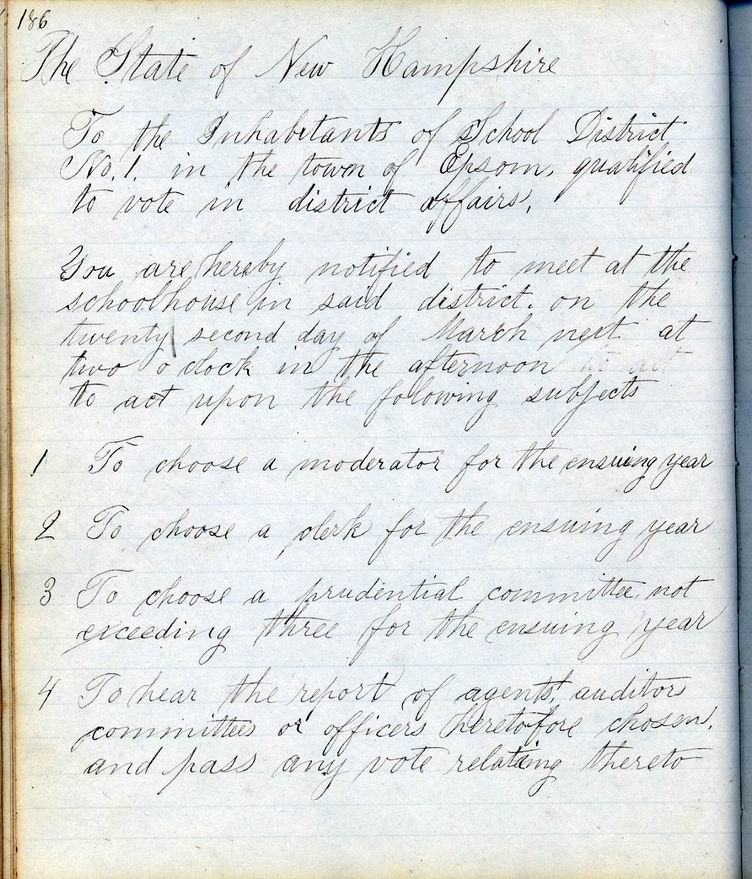 186
The State of New Hampshire
To the Inhabitants of School District
No. 1. in the town of Epsom, qualified
to vote in district affairs.
You are hereby notified to meet at the
schoolhouse in said district. on the
twenty second day of March next at
two o clock in the afternoon to act
to act upon the folowing subjects
1 To choose a moderator for the ensuing year
2 To choose a clerk for the ensuing year
3 To choose a prudential committee not
exceeding three for the ensuing year
4 To hear the report of agents, auditors
committees or officers heretofore chosen,
and pass any vote relating thereto